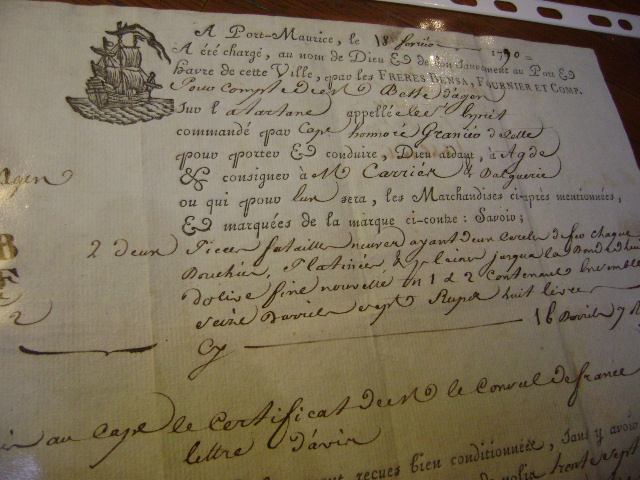 A Port-Maurice, le 18 fevrier 1790 =
A été chargé, au nom de Dieu & de bon Sauvement au Port &
havre de cette Ville, par les FRERES DENSA, FOURNIER ET COMP.
Pour Compte de M Bette d'agen
Sur l atartane appellée le St
commandé par Cape honnoré Granier de
pour porter & conduire, Dieu aidant, à Agde
& consigner à M Carrier & Dalguerie
ou qui pour lui sera, les Marchandises ci-après mentionnées,
& marquées de la marque ci-contre : Savoir;
agen
B
2
2 deux Pieces futailles neuves ayant deux Cercles de fer chaque
Bouchées, Platinées & pleines jusqua la Bonde d'huile
d'olive fine nouvelle en 1 & 2 Contenant Ensemble
Seize Barrils sept Rups huit livres
Cy 16 Barrils 7 R
au Cape le Certificat de M le Consul de france
lettre d'avis
recues bien conditionnées, sans y avoir
trente sept